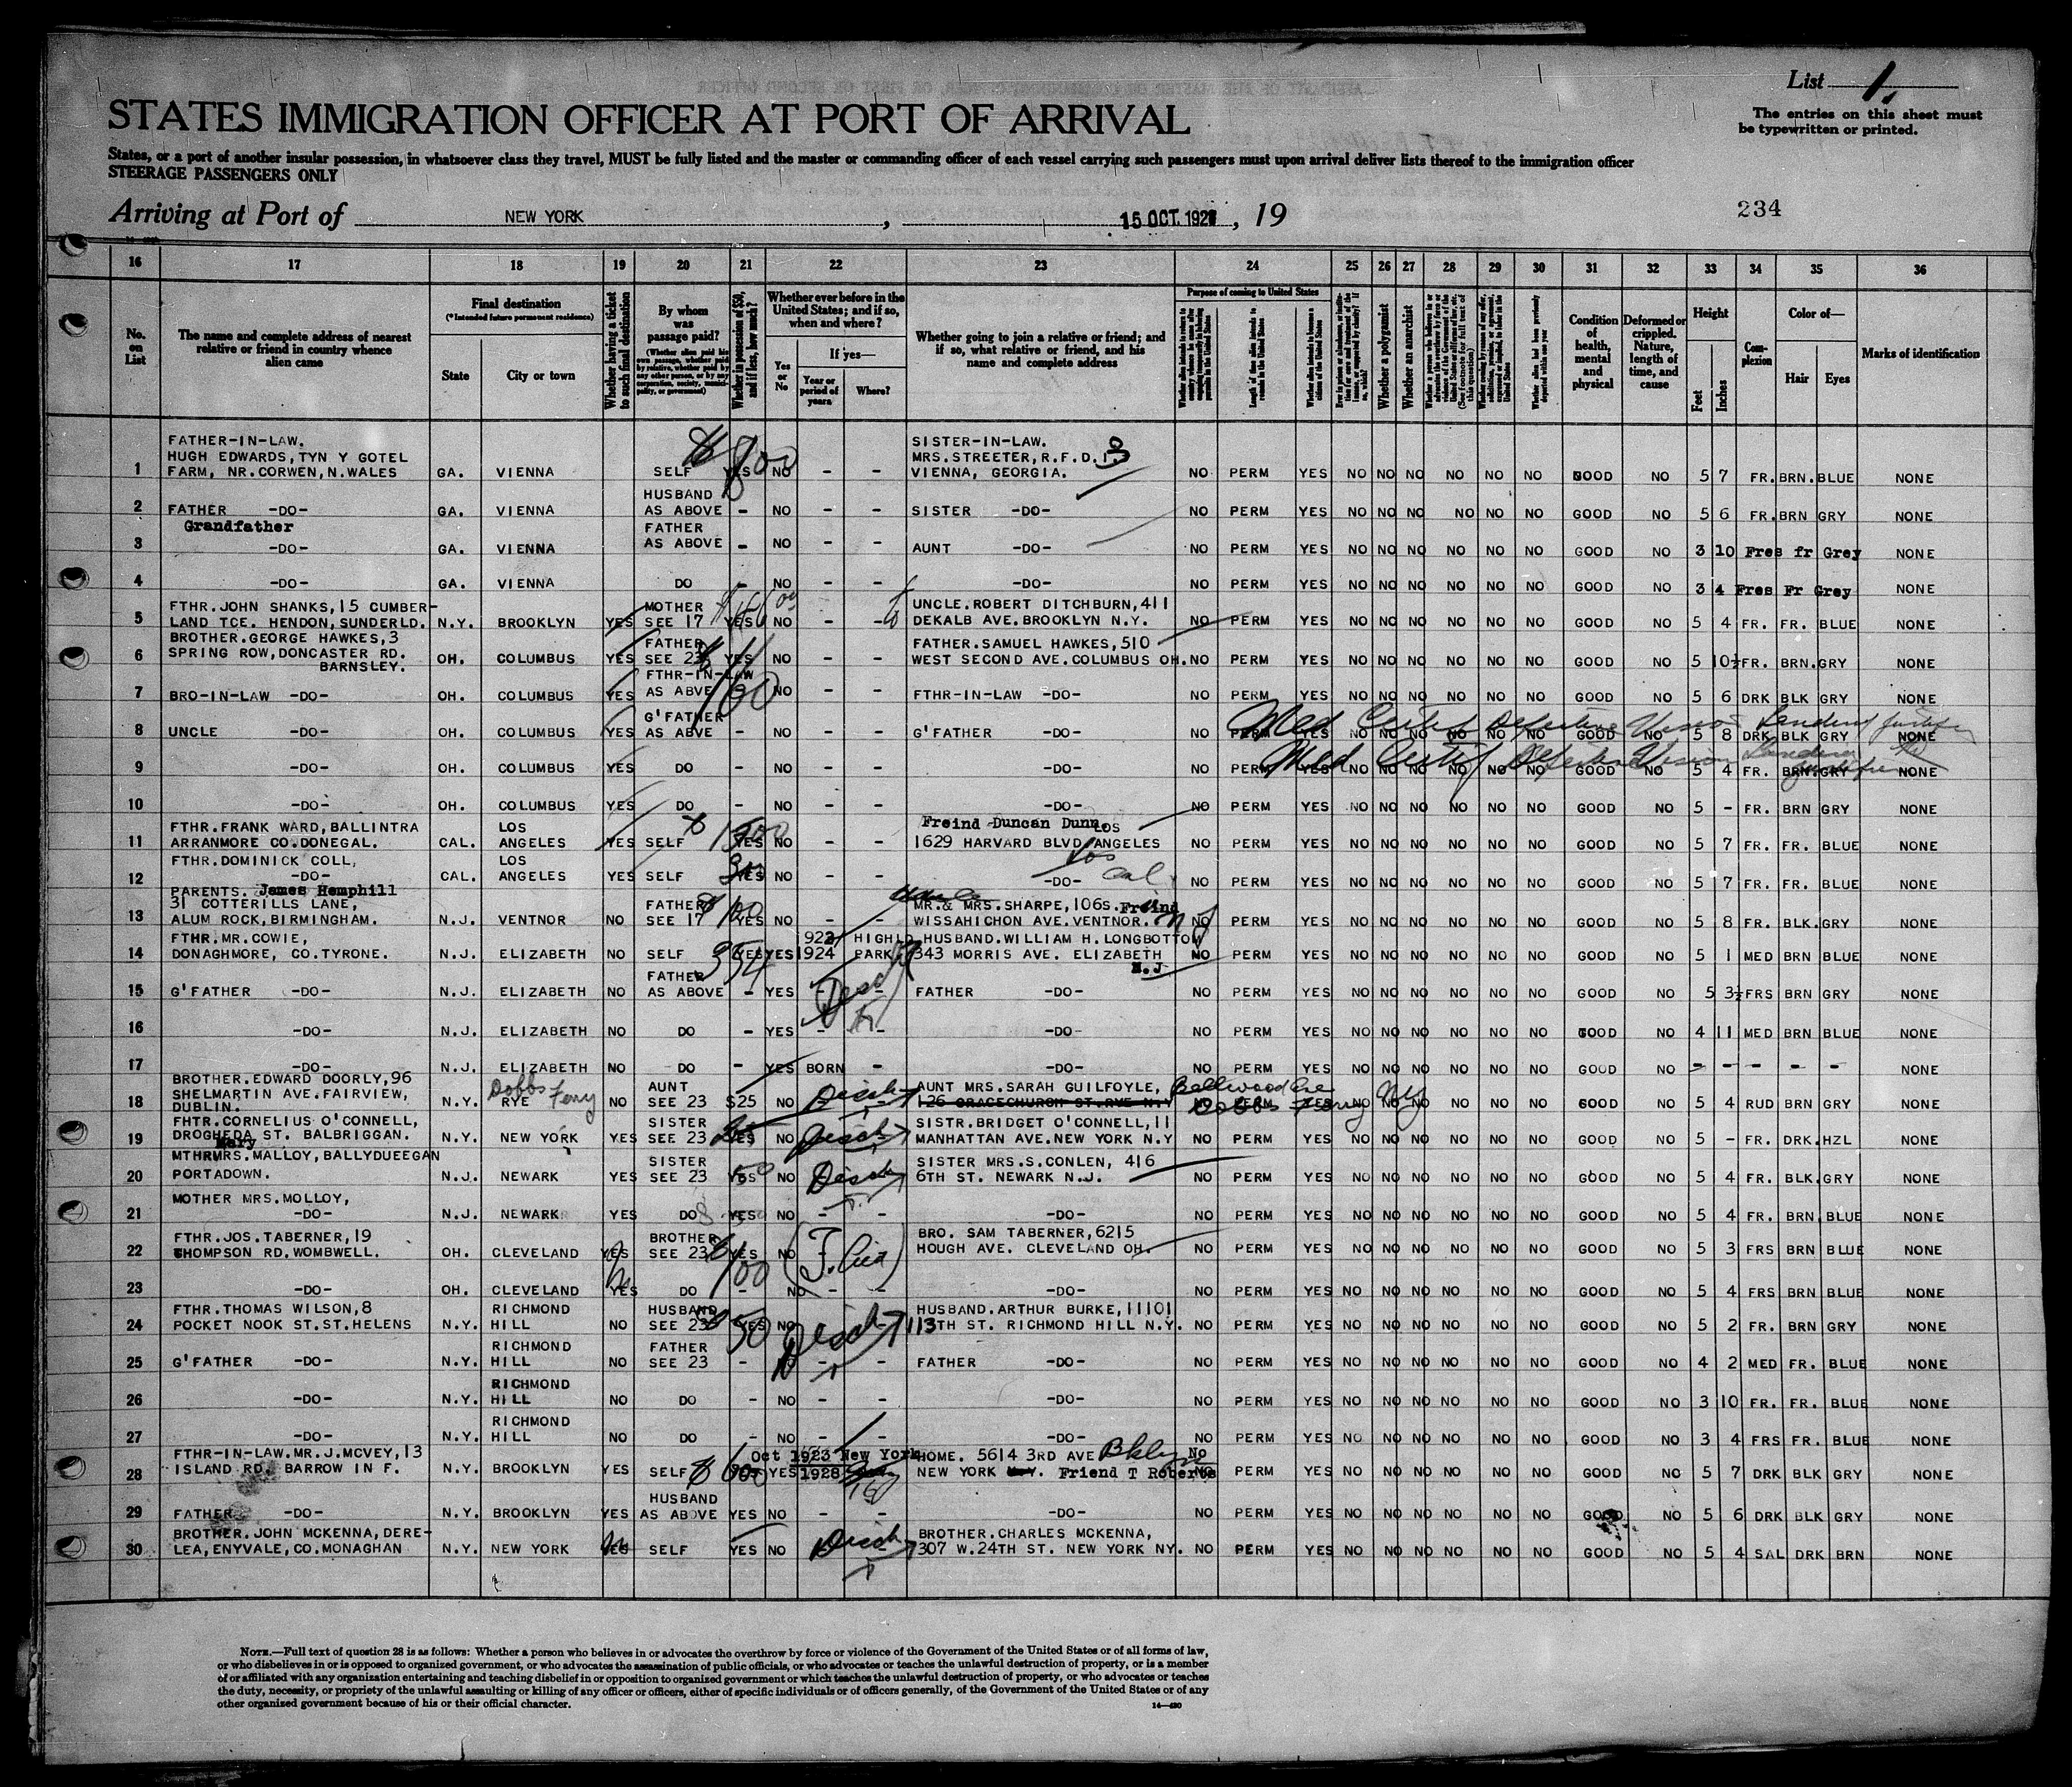 List 1.
The entries on this sheet must
be typewritten or printed.
STATES IMMIGRATION OFFICER AT PORT OF ARRIVAL
States, or a port of another insular possession, in whatsoever class they travel, MUST be fully listed and the master or commanding officer of each vessel carrying such passengers must upon arrival deliver lists thereof to the immigration officer
STEERAGE PASSENGERS ONLY
Arriving at Port of NEW YORK, 15 OCT. 1928, 19
234
16 17 18 19 20 21 22 23 24 25 26 27 28 29 30 31 32 33 34 35 36
No. on List
The name and complete address of nearest relative or friend in country whence alien came
Final destination
(*Intended future permanent residence)
State
City or town
Whether having a ticket to such final destination
By whom was passage paid?
Whether in possession of $50, and if less, how much?
Whether ever before in the United States; and if so, when and where?
Yes or No
If yes—
Year or period of years
Where?
Whether going to join a relative or friend; and if so, what relative or friend, and his name and complete address
Purpose of coming to United States
Whether a polygamist
Whether an anarchist
Condition of health, mental and physical
Deformed or crippled. Nature, length of time, and cause
Height
Feet
Inches
Complexion
Color of—
Hair
Eyes
Marks of identification
1 FATHER-IN-LAW. HUGH EDWARDS, TYN Y GOTEL FARM, NR. CORWEN, N. WALES GA. VIENNA SELF YES NO - - SISTER-IN-LAW. MRS. STREETER, R.F.D. 3 VIENNA, GEORGIA. NO PERM YES NO NO NO NO NO NO GOOD NO 5 7 FR. BRN. BLUE NONE
2 FATHER -DO- GA. VIENNA HUSBAND AS ABOVE - NO - - SISTER -DO- NO PERM YES NO NO NO NO NO NO GOOD NO 5 6 FR. BRN GRY NONE
3 Grandfather -DO- GA. VIENNA FATHER AS ABOVE - NO - - AUNT -DO- NO PERM YES NO NO NO NO NO NO GOOD NO 3 10 Fres fr Grey NONE
4 -DO- GA. VIENNA DO - NO - - -DO- NO PERM YES NO NO NO NO NO NO GOOD NO 3 4 Fres Fr Grey NONE
5 FTHR. JOHN SHANKS, 15 CUMBER-LAND TCE. HENDON, SUNDERLD. N.Y. BROOKLYN YES MOTHER SEE 17 YES NO - - UNCLE. ROBERT DITCHBURN, 411 DEKALB AVE. BROOKLYN N.Y. NO PERM YES NO NO NO NO NO NO GOOD NO 5 4 FR. FR. BLUE NONE
6 BROTHER. GEORGE HAWKES, 3 SPRING ROW, DONCASTER RD. BARNSLEY. OH. COLUMBUS YES FATHER SEE 23 YES NO - - FATHER. SAMUEL HAWKES, 510 WEST SECOND AVE. COLUMBUS OH. NO PERM YES NO NO NO NO NO NO GOOD NO 5 10½ FR. BRN. GRY NONE
7 BRO-IN-LAW -DO- OH. COLUMBUS YES FTHR-IN-LAW AS ABVE 100 NO - - FTHR-IN-LAW -DO- NO PERM YES NO NO NO NO NO NO GOOD NO 5 6 DRK BLK GRY NONE
8 UNCLE -DO- OH. COLUMBUS YES G'FATHER AS ABVE - NO - - G'FATHER -DO- NO PERM YES NO NO NO NO NO NO GOOD NO 5 8 DRK BLK GRY NONE
Med Certif Defective Vision
9 -DO- OH. COLUMBUS YES DO - NO - - -DO- NO PERM YES NO NO NO NO NO NO GOOD NO 5 4 FR. BRN. GRY NONE
Med Certif Defective Vision
10 -DO- OH. COLUMBUS YES DO - NO - - -DO- NO PERM YES NO NO NO NO NO NO GOOD NO 5 - FR. BRN GRY NONE
11 FTHR. FRANK WARD, BALLINTRA ARRANMORE CO. DONEGAL. CAL. LOS ANGELES YES SELF YES NO - - Freind Duncan Dunn, LOS 1629 HARVARD BLVD ANGELES NO PERM YES NO NO NO NO NO NO GOOD NO 5 7 FR. FR. BLUE NONE
12 FTHR. DOMINICK COLL, -DO- CAL. LOS ANGELES YES SELF YES NO - - -DO- Los Cal. NO PERM YES NO NO NO NO NO NO GOOD NO 5 7 FR. FR. BLUE NONE
13 PARENTS. James Hemphill 31 COTTERILLS LANE, ALUM ROCK, BIRMINGHAM. N.J. VENTNOR NO FATHER SEE 17 100 YES NO - - MR. & MRS. SHARPE, 106 S. Freind WISSAHICHON AVE. VENTNOR. NJ NO PERM YES NO NO NO NO NO NO GOOD NO 5 8 FR. BLK. GRY NONE
14 FTHR. MR. COWIE, DONAGHMORE, CO. TYRONE. N.J. ELIZABETH NO SELF 354 YES YES 1924 HIGHLD PARK HUSBAND. WILLIAM H. LONGBOTTOM 343 MORRIS AVE. ELIZABETH N.J NO PERM YES NO NO NO NO NO NO GOOD NO 5 1 MED BRN BLUE NONE
15 G'FATHER -DO- N.J. ELIZABETH NO FATHER AS ABOVE - YES - - FATHER -DO- NO PERM YES NO NO NO NO NO NO GOOD NO 5 3½ FRS BRN GRY NONE
16 -DO- N.J. ELIZABETH NO DO - YES - -DO- NO PERM YES NO NO NO NO NO NO GOOD NO 4 11 MED BRN BLUE NONE
17 -DO- N.J. ELIZABETH NO DO - YES BORN - -DO- NO PERM YES NO NO NO NO NO NO GOOD NO - - - - - NONE
18 BROTHER. EDWARD DOORLY, 96 SHELMARTIN AVE. FAIRVIEW, DUBLIN. N.Y. RYE Dobbs Ferry NO AUNT SEE 23 $25 NO Disch AUNT MRS. SARAH GUILFOYLE, 126 GRACECHURCH ST. RYE N.Y Bellwood Ave Dobbs Ferry NY NO PERM YES NO NO NO NO NO NO GOOD NO 5 4 RUD BRN GRY NONE
19 FHTR. CORNELIUS O'CONNELL, DROGHEDA ST. BALBRIGGAN. N.Y. NEW YORK YES SISTER SEE 23 YES NO Disch SISTR. BRIDGET O'CONNELL, 11 MANHATTAN AVE. NEW YORK N.Y NO PERM YES NO NO NO NO NO NO GOOD NO 5 - FR. DRK. HZL NONE
20 Mary MTHR MRS. MALLOY, BALLYDUEEGAN PORTADOWN. N.J. NEWARK YES SISTER SEE 23 YES 50 NO Disch SISTER MRS. S. CONLEN, 416 6TH ST. NEWARK N.J. NO PERM YES NO NO NO NO NO NO GOOD NO 5 4 FR. BLK. GRY NONE
21 MOTHER MRS. MOLLOY, -DO- N.J. NEWARK YES DO YES NO - - -DO- NO PERM YES NO NO NO NO NO NO GOOD NO 5 4 FR. BRN BLUE NONE
22 FTHR. JOS. TABERNER, 19 THOMPSON RD. WOMBWELL. OH. CLEVELAND YES BROTHER SEE 23 YES NO BRO. SAM TABERNER, 6215 HOUGH AVE. CLEVELAND OH. NO PERM YES NO NO NO NO NO NO GOOD NO 5 3 FRS BRN BLUE NONE
23 -DO- OH. CLEVELAND YES DO 100 - NO - - -DO- NO PERM YES NO NO NO NO NO NO GOOD NO 5 4 FRS BRN BLUE NONE
24 FTHR. THOMAS WILSON, 8 POCKET NOOK ST. ST. HELENS N.Y. RICHMOND HILL NO HUSBAND SEE 23 50 YES NO Disch HUSBAND. ARTHUR BURKE, 11101 113TH ST. RICHMOND HILL N.Y. NO PERM YES NO NO NO NO NO NO GOOD NO 5 2 FR. BRN GRY NONE
25 G'FATHER -DO- N.Y. RICHMOND HILL NO FATHER SEE 23 - NO - - FATHER -DO- NO PERM YES NO NO NO NO NO NO GOOD NO 4 2 MED FR. BLUE NONE
26 -DO- N.Y. RICHMOND HILL NO DO - NO - - -DO- NO PERM YES NO NO NO NO NO NO GOOD NO 3 10 FR. FR. BLUE NONE
27 -DO- N.Y. RICHMOND HILL NO DO - NO - - -DO- NO PERM YES NO NO NO NO NO NO GOOD NO 3 4 FRS FR. BLUE NONE
28 FTHR-IN-LAW. MR. J. MCVEY, 13 ISLAND RD. BARROW IN F. N.Y. BROOKLYN YES SELF YES Oct 1923 New York 1928 HOME. 5614 3RD AVE Bklyn NEW YORK N.Y. Friend T Roberts No PERM YES NO NO NO NO NO NO GOOD NO 5 7 DRK BLK GRY NONE
29 FATHER -DO- N.Y. BROOKLYN YES HUSBAND AS ABOVE YES NO - - -DO- NO PERM YES NO NO NO NO NO NO GOOD NO 5 6 DRK BLK GRY NONE
30 BROTHER. JOHN MCKENNA, DERE-LEA, ENYVALE, CO. MONAGHAN N.Y. NEW YORK YES SELF YES NO Disch BROTHER. CHARLES MCKENNA, 307 W. 24TH ST. NEW YORK NY. NO PERM YES NO NO NO NO NO NO GOOD NO 5 4 SAL DRK BRN NONE
NOTE.—Full text of question 28 is as follows: Whether a person who believes in or advocates the overthrow by force or violence of the Government of the United States or of all forms of law,
or who disbelieves in or is opposed to organized government, or who advocates the assassination of public officials, or who advocates or teaches the unlawful destruction of property, or is a member
of or affiliated with any organization entertaining and teaching disbelief in or opposition to organized government or which teaches the unlawful destruction of property, or who advocates or teaches
the duty, necessity, or propriety of the unlawful assaulting or killing of any officer or officers, either of specific individuals or of officers generally, of the Government of the United States or of any
other organized government because of his or their official character.
14—430